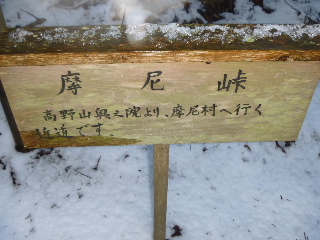 摩尼峠
高野山奥之院より、摩尼村へ行く
近道です。